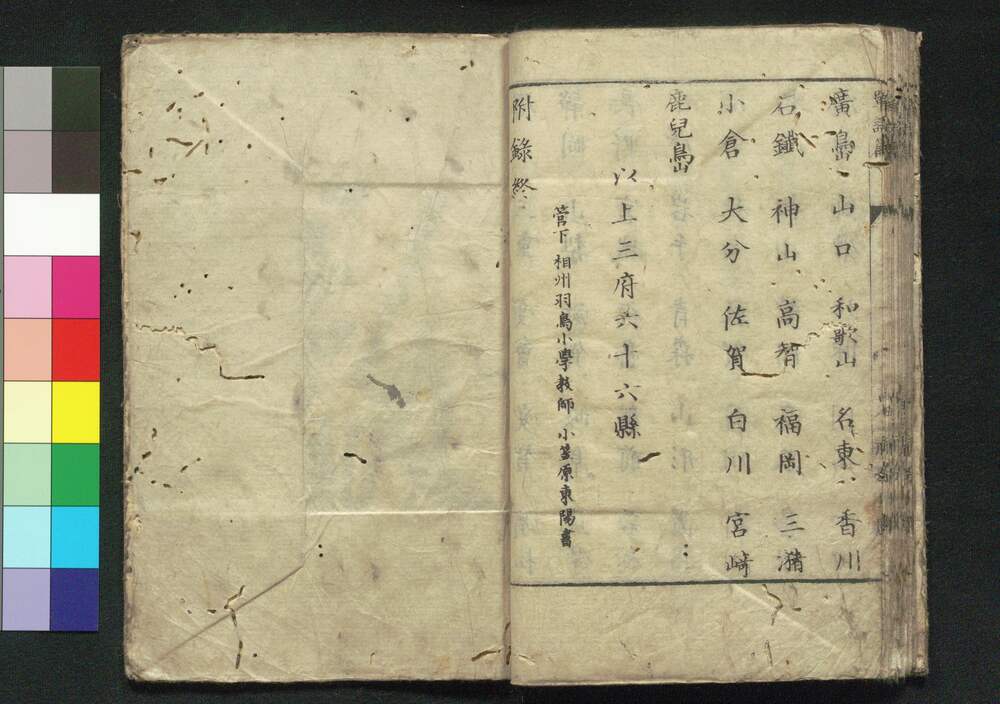 廣島 山口 和歌山 名東 香川
石鐵 神山 高智 福岡 三潴
小倉 大分 佐賀 白川 宮崎
鹿兒島
以上三府六十六縣
管下相州羽鳥小學教師 小笠原東陽書
附錄終